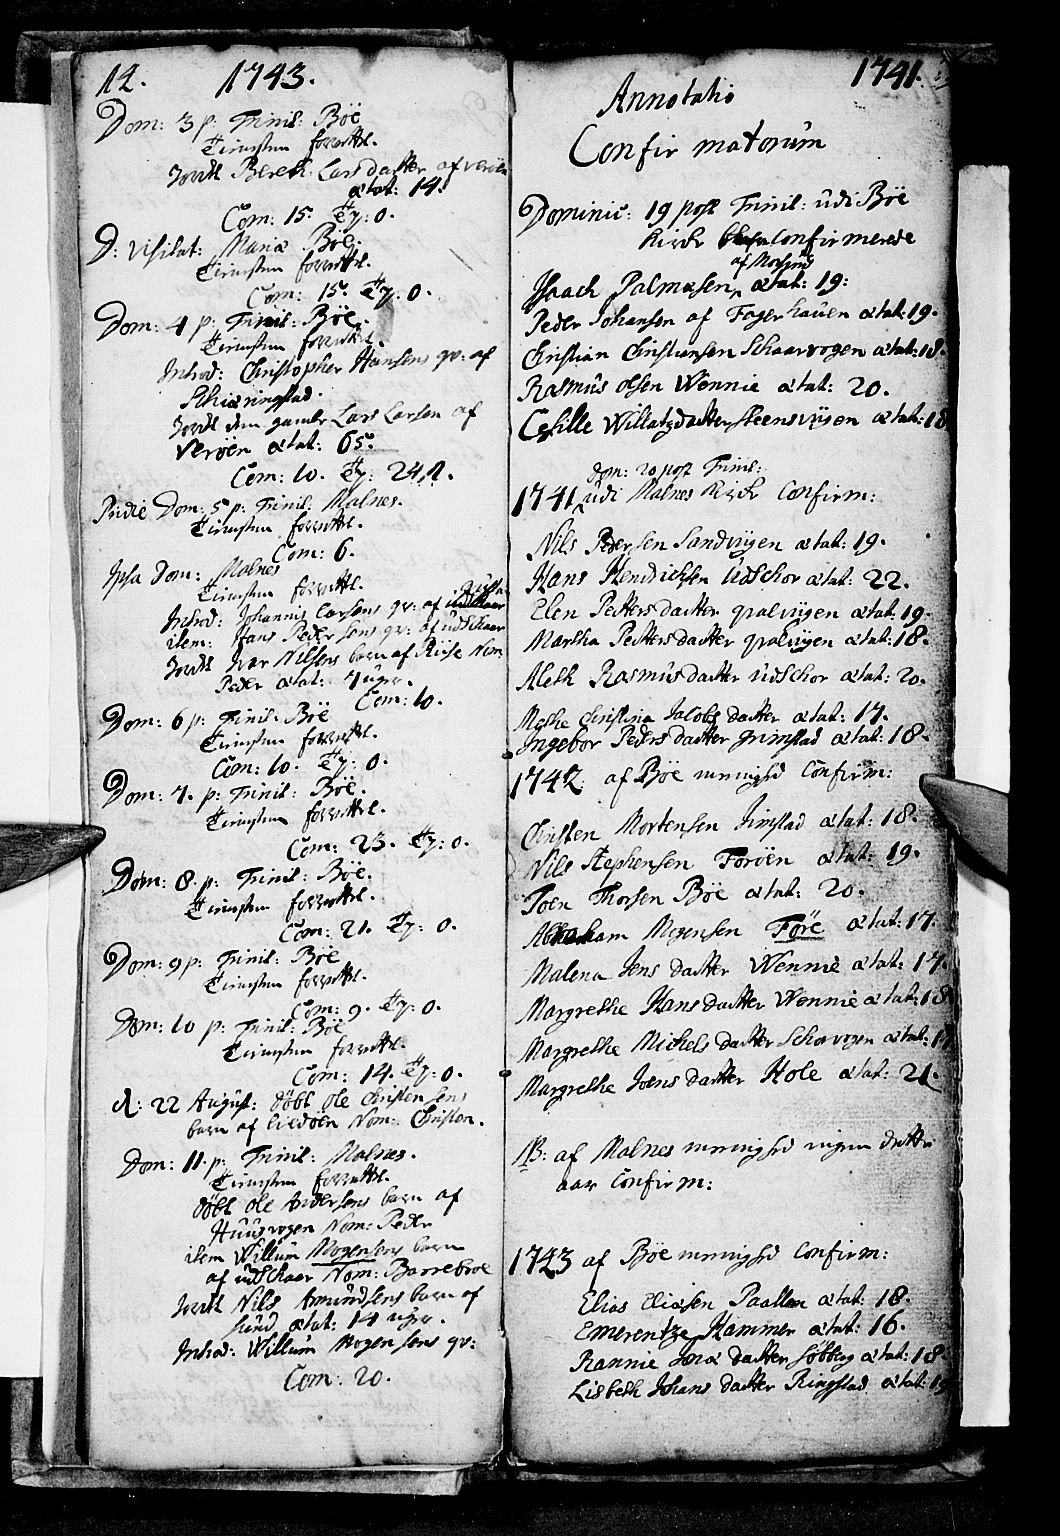 12. 1743.
Dom: 3 p: Trinit: Böe
Tienesten forrettet.
Jordt Bereth Lars datter af Veröen
ætat: 14.
Com: 15. Tv: 0.
D: Visitat: Mariæ Böe.
Tienesten forrettet.
Com: 15. Tv: 0.
Dom: 4 p: Trinit: Böe.
Tienesten forrettet.
Introd: Christopher Hansens qv: af
Schieringstad.
Jordt den gamle Lars Larsen af
Veröen ætat: 65.
Com: 10. Tv: 24.
Pridie Dom: 5 p: Trinit: Malnes.
Tienesten forrettet.
Com: 6.
Ipsa Dom: Malnes
Tienesten forrettet.
Introd: Johannis Larsens qv: af
item: Hans Peder sens qv: af udschaar
Jordt Ivar Nilsens barn af Riise Nom:
Peder ætat: 7 uger.
Com: 10.
Dom: 6 p: Trinit: Böe
Tienesten forrettet.
Com: 10. Tv: 0.
Dom: 7. p: Trinit: Böe.
Tienesten forrettet.
Com: 23. Tv: 0.
Dom: 8. p: Trinit: Böe.
Tienesten forrettet.
Com: 21. Tv: 0.
Dom: 9 p: Trinit: Böe
Tienesten forrettet.
Com: 9. Tv: 0.
Dom: 10 p: Trinit: Böe
Tienesten forrettet.
Com: 14. Tv: 0.
d: 22 August: döbt ole Christensens
barn af lilöen Nom: Christen.
Dom: 11. p: Trinit: Malnes.
Tienesten forrettet.
döbt ole Andersens barn af
Huusvogen Nom: Peder
item Willum Mogensens barn
af udschaar Nom: Barrebroe
Jordt Nils Amundsens barn af
sund ætat: 14 uger.
Introd: Willum Mogensens qv:
Com: 20.
1741.
Annotatio
Confirmatorum
Dominic: 19 post Trinit: udi Böe
Kirche confirmerede
Isaach Palmesen ætat: 19:
Peder Johansen af Fagerhauen ætat: 19.
Christian Christiansen Schaarvogen ætat: 18.
Rasmus olsen Wennie ætat: 20.
Cesille Willatzdatter steensviigen ætat: 18
Dom: 20 post Trinit:
1741 udi Malnes Kirche Confirm:
Nils Pedersen Sandviigen ætat: 19.
Hans Hendrichsen Udschor ætat: 22.
Elen Petters datter qvalviigen ætat: 19.
Martha Petters datter qvalviigen ætat: 18.
Aleth Rasmus datter Udschor ætat: 20.
Methe Christina Jacobs datter ætat: 17.
Ingebor Peders datter grimstad ætat: 18.
1742. af Böe menighed Confirm:
Christen Mortensen Jimstad ætat: 18.
Nils Stephensen Foröen ætat: 19.
Joen Thorsen Böe ætat: 20.
Abraham Mogensen Före ætat: 17.
Malena Jens datter Wennie ætat: 17.
Margrethe Hans datter Wennie ætat: 18
Margrethe Michels datter Schorvogen ætat:
Margrethe Joens datter Hole ætat: 21.
NB: af Malnes menighed ingen dette
aar Confirm:
1743 af Böe menighed Confirm:
Elias Eliasen Paallen ætat: 18.
Emerentze Hammer ætat: 16.
Rannie datter Söberg ætat: 18.
Lisbeth Johans datter Ringstad ætat: 19